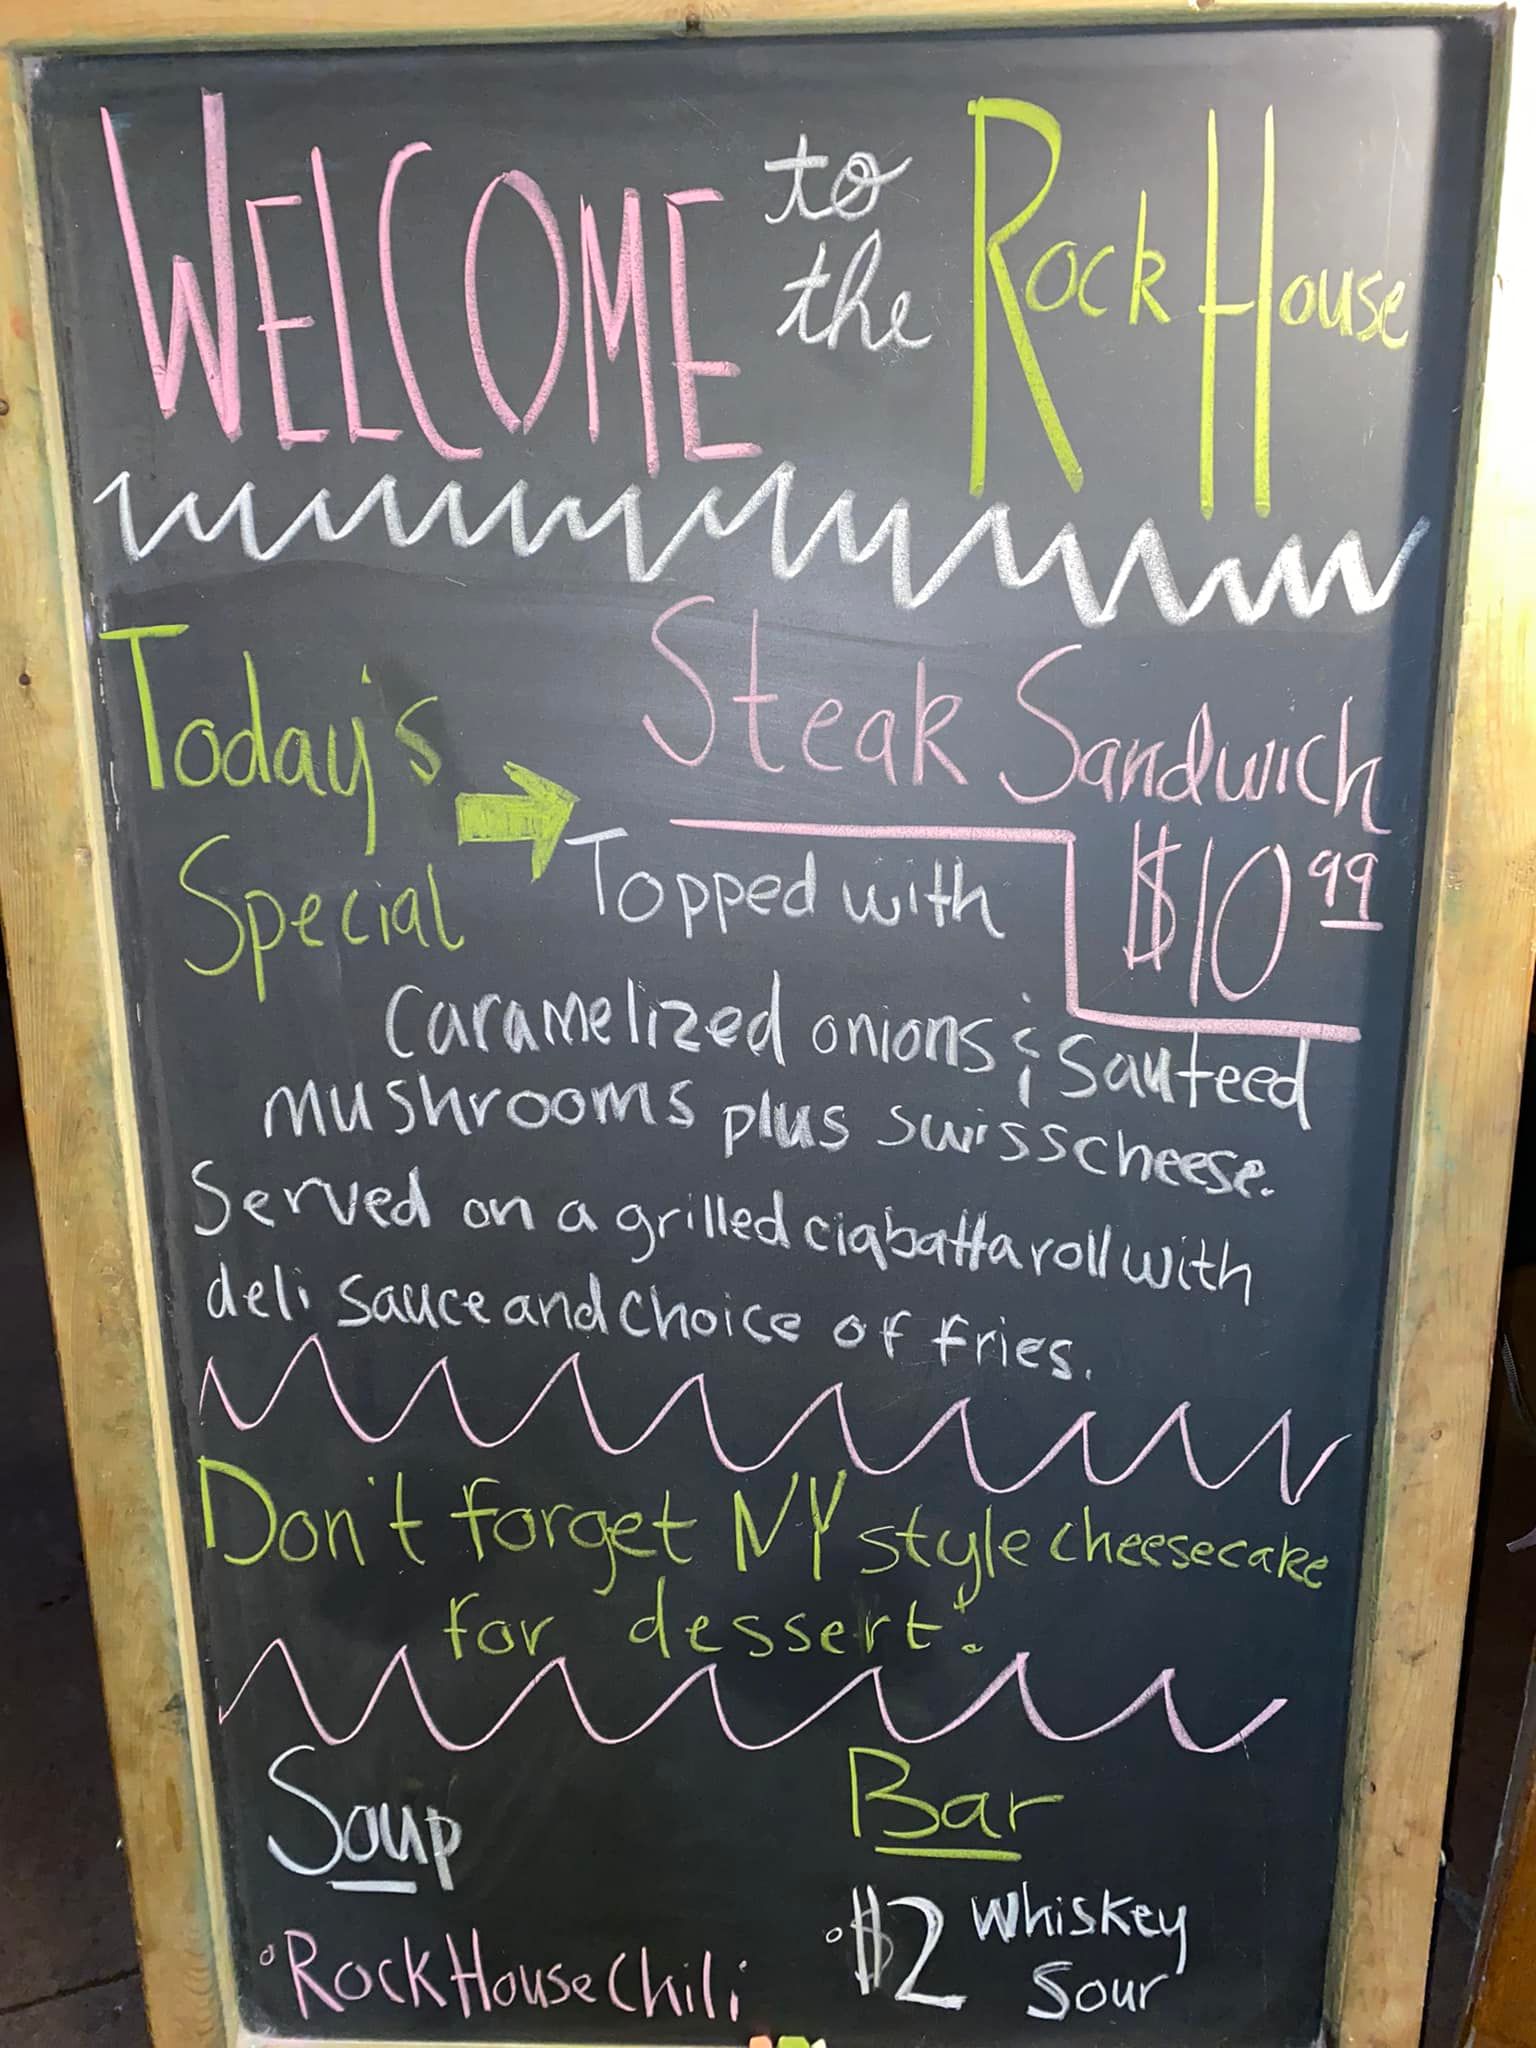 WELCOME to the Rock House
Today's Special
Steak Sandwich
$10.99
Topped with
caramelized onions & sauteed
mushrooms plus swiss cheese.
Served on a grilled ciabatta roll with
deli sauce and choice of fries.
Don't forget NY style cheesecake
for dessert!
Soup
Rock House Chili
Bar
$2 Whiskey
Sour